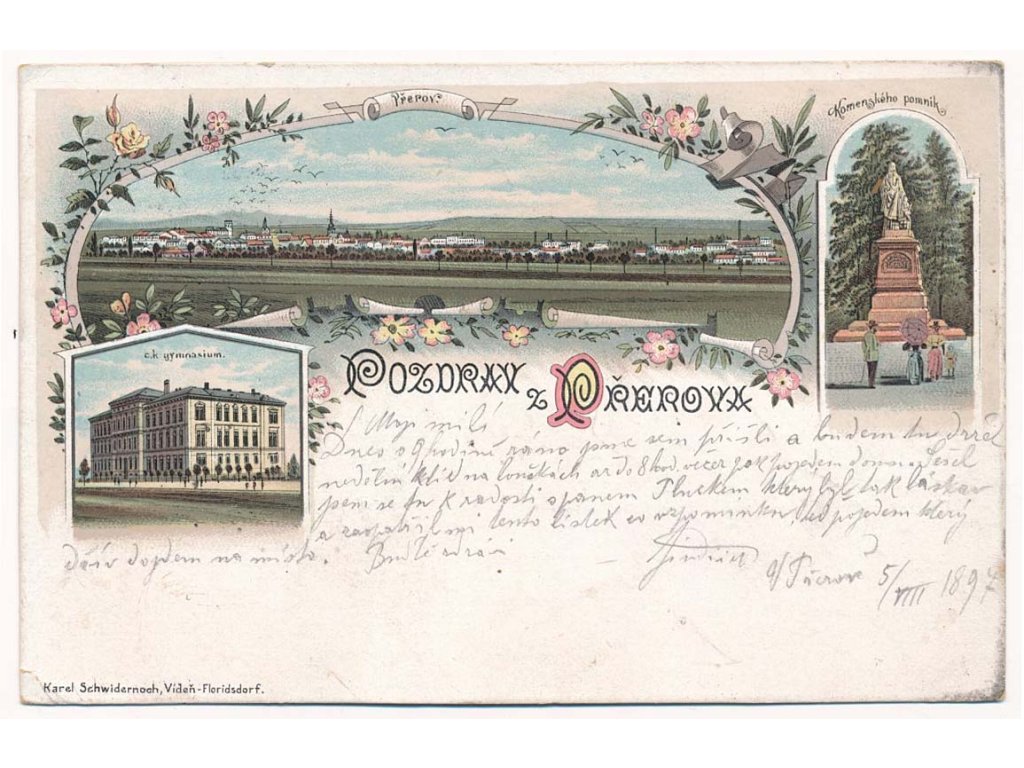 Přerov.
Komenského pomník.
c.k. gymnasium.
POZDRAV z PŘEROVA
Moji milí
Dnes o 9 hodině ráno jsme sem přišli a budem tu
na loučkách až do 8 hod. večer pak pojedem domu
jsem se tu k radosti s panem který byl tak laskav
a mi tento lístek co vzpomínku, pojedem který
dřív dojdem na místo. Buďte zdrávi
Jindřich
Přerov 5/VIII 1897
Karel Schwidernoch, Vídeň-Floridsdorf.